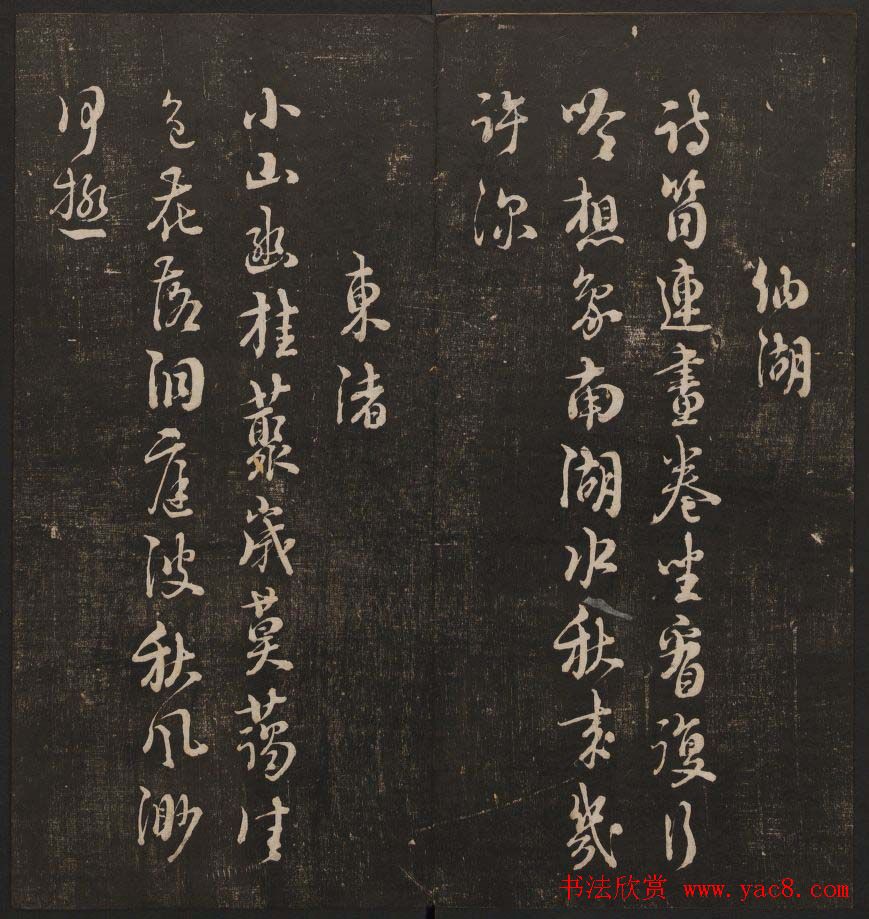 納湖
詩筒連畫卷坐看復行
吟想象南湖水秋來幾
許深
東渚
小山幽桂藂歲莫藹佳
色花落洞庭波秋風渺
何極
书法欣赏 www.yac8.com